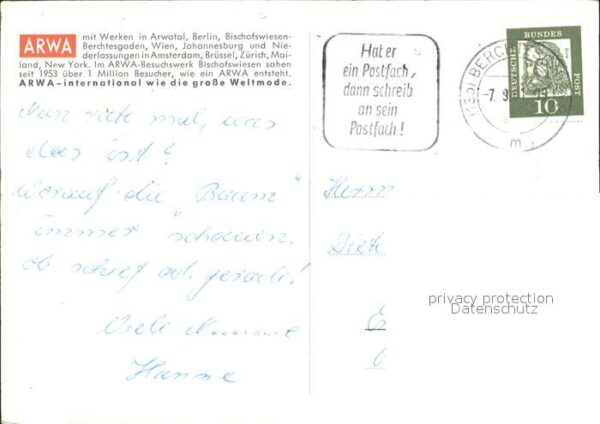 ARWA
mit Werken in Arwatal, Berlin, Bischofswiesen-
Berchtesgaden, Wien, Johannesburg und Nie-
derlassungen in Amsterdam, Brüssel, Zürich, Mai-
land, New York. Im ARWA-Besuchswerk Bischofswiesen sahen
seit 1953 über 1 Million Besucher, wie ein ARWA entsteht.
ARWA-international wie die große Weltmode.
Hat er
ein Postfach,
dann schreib
an sein
Postfach!
BERCHT
-7. 9.
m
DEUTSCHE BUNDES POST
10
Nun rate mal, was
das ist?
Worauf die "Beum"
immer schauen.
ob schief od. gerade!
Viele
Hanne
Herrn
Diete
privacy protection
Datenschutz